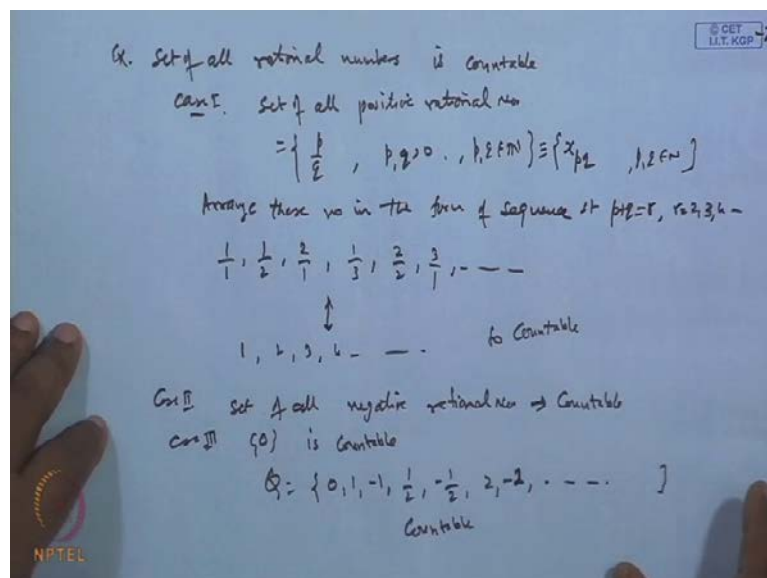 © CET
I.I.T. KGP
Ex. Set of all rational numbers is countable
Case I. Set of all positive rational nos
= { p/q , p,q>0 . , p,q ∈ IN } ≡ { x_pq , p,q ∈ N }
Arrange these no in the form of sequence st p+q=r, r=2,3,4 –
1/1, 1/2, 2/1, 1/3, 2/2, 3/1, – – –
↕
1, 2, 3, 4 – –. So Countable
Case II Set of all negative rational nos ⇒ Countable
Case III {0} is Countable
Q = { 0, 1, -1, 1/2, -1/2, 2, -2, . – – – . }
Countable
NPTEL